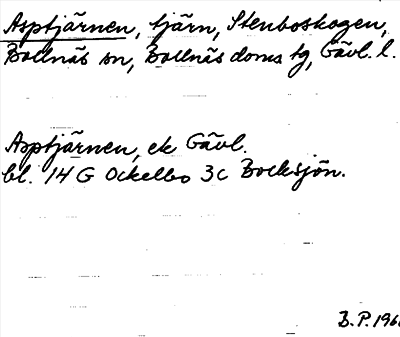 Asptjärnen, tjärn, Stenboskogen,
Bollnäs sn, Bollnäs doms tg, Gävl. l.
Asptjärnen, ek Gävl.
bl. 14 G Ockelbo 3c Bocksjön.
B.P.